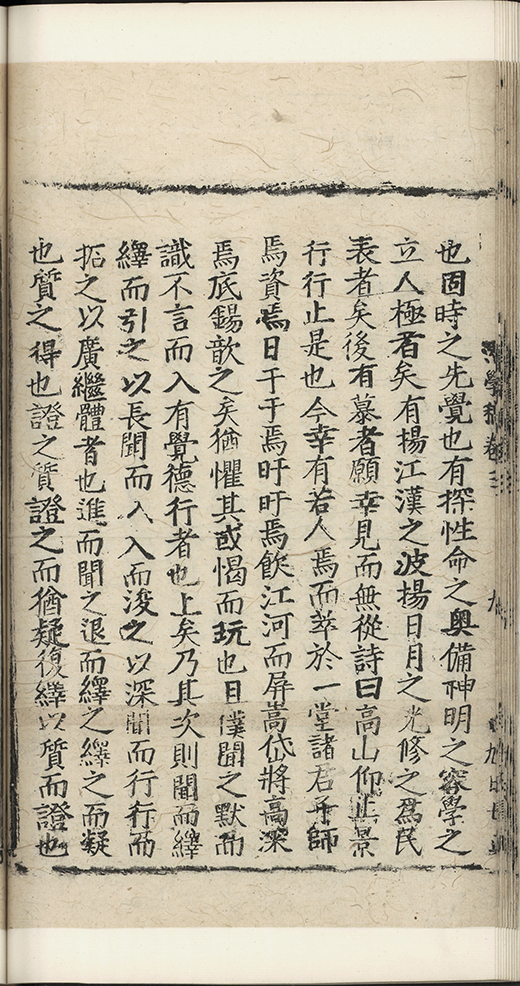 學 卷
也固時之先覺也有探性命之奧備神明之容學之
立人極者矣有揚江漢之波揚日月之光修之爲民
表者矣後有慕者願幸見而無從詩曰高山仰止景
行行止是也今幸有若人焉而萃於一堂諸君子師
焉資焉日于于焉旴旴焉飲江河而屏嵩岱將高深
焉底錫歆之矣猶懼其或愒而玩也且僕聞之默而
識不言而入有覺德行者也上矣乃其次則聞而繹
繹而引之以長聞而入入而浚之以深聞而行行而
拓之以廣繼體者也進而聞之退而繹之繹之而疑
也質之得也證之質證之而猶疑復繹以質而證也